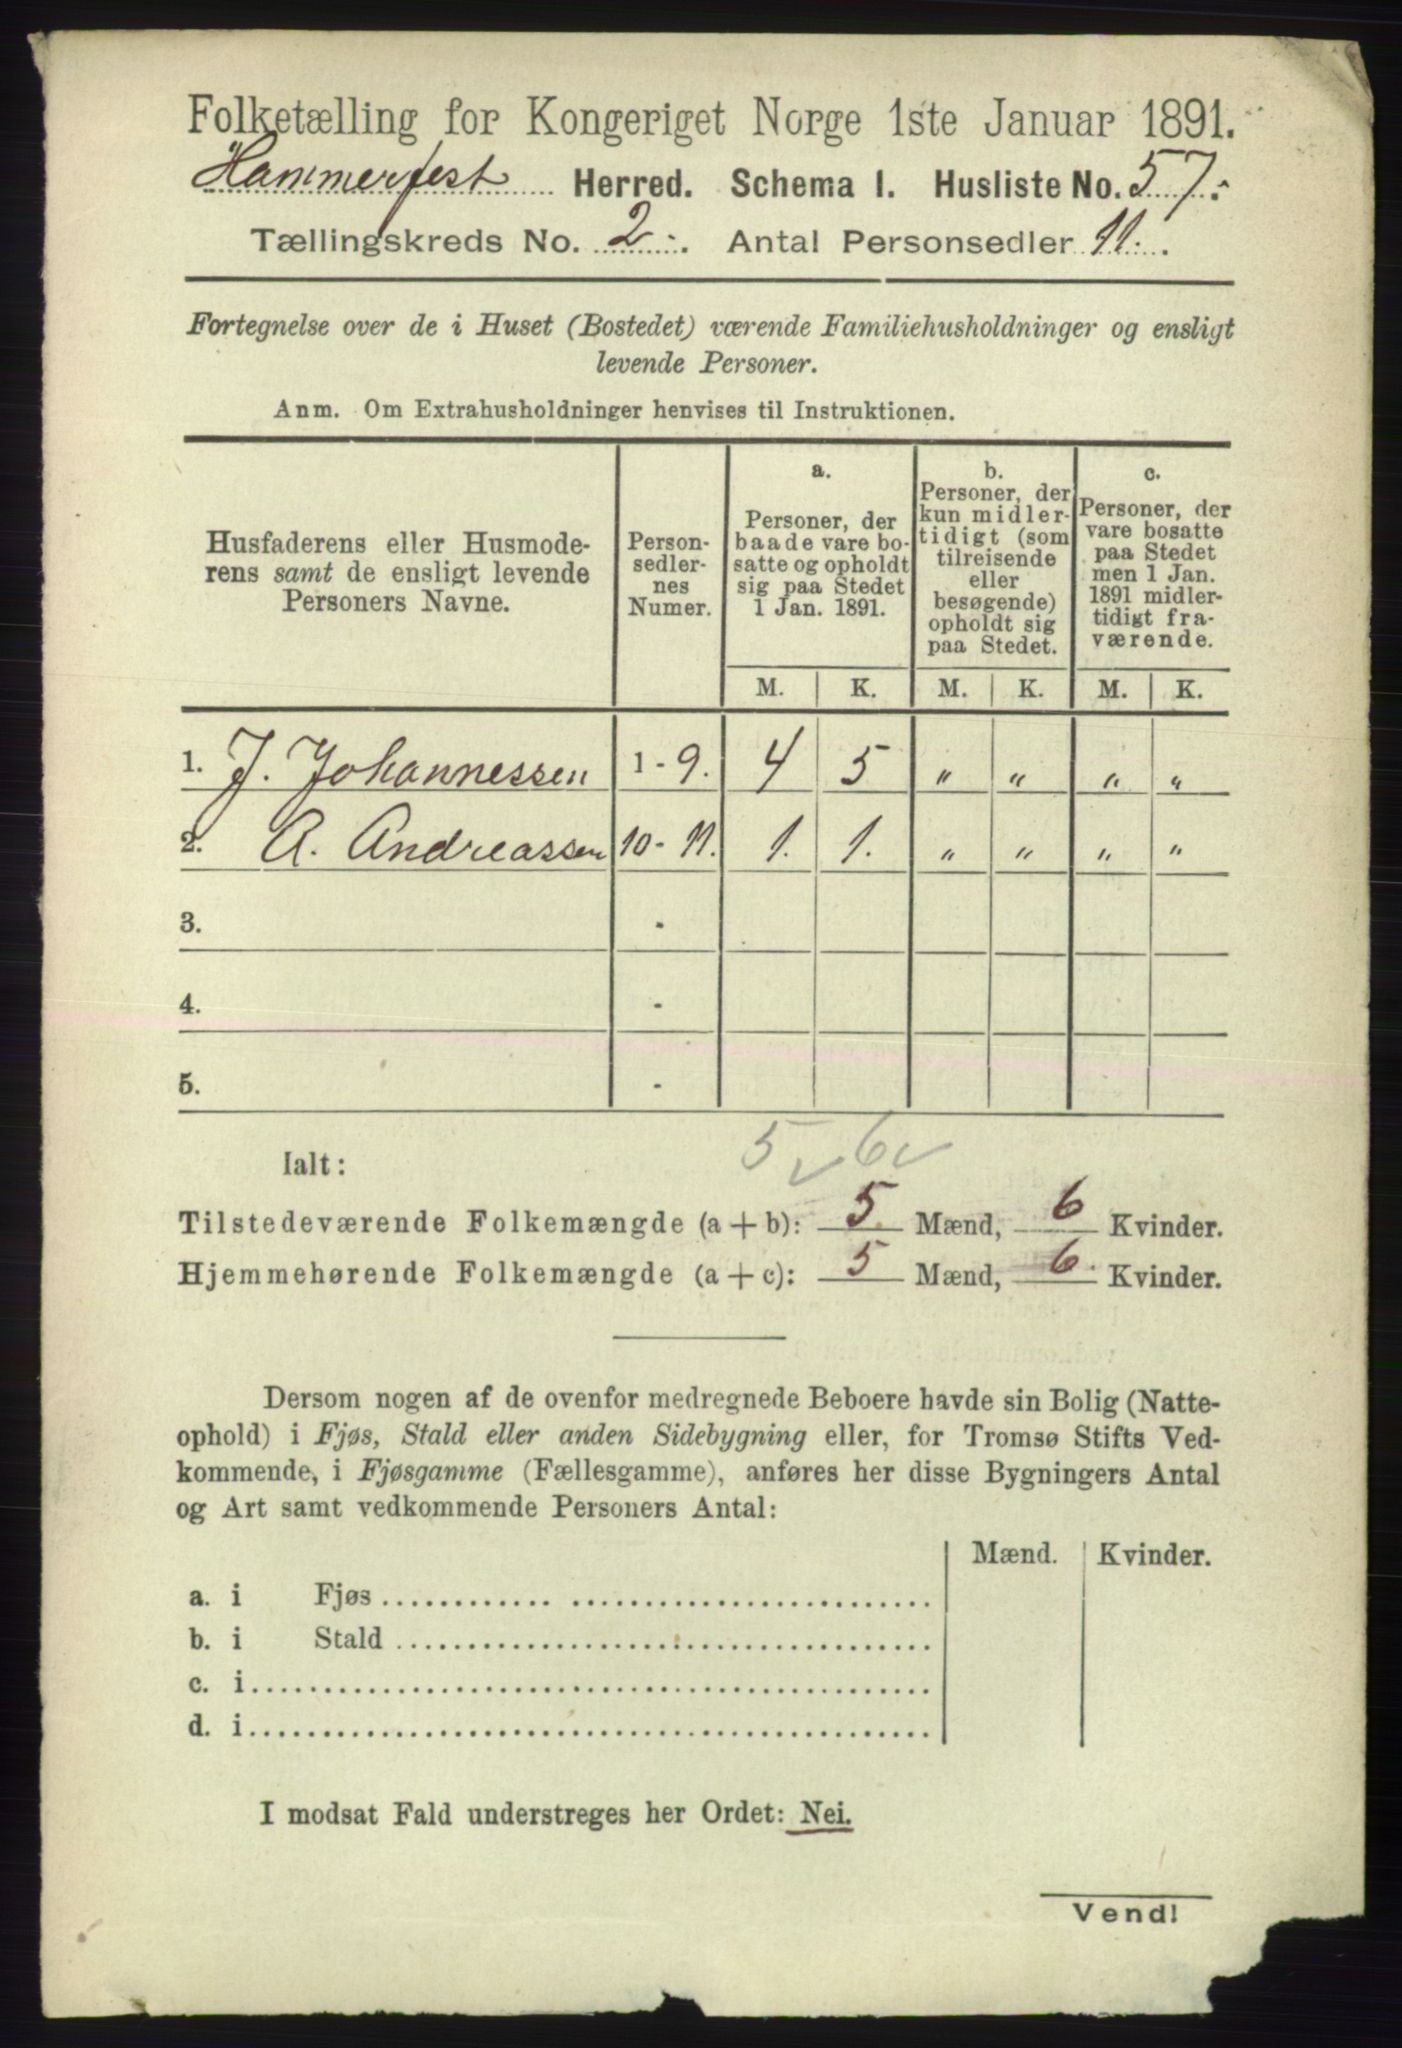 Folketælling for Kongeriget Norge 1ste Januar 1891.
Hammerfest Herred. Schema I. Husliste No. 57.
Tællingskreds No. 2. Antal Personsedler 11.
Fortegnelse over de i Huset (Bostedet) værende Familiehusholdninger og ensligt
levende Personer.
Anm. Om Extrahusholdninger henvises til Instruktionen.
Husfaderens eller Husmode-
rens samt de ensligt levende
Personers Navne.
Person-
sedler-
nes
Numer.
a.
Personer, der
baade vare bo-
satte og opholdt
sig paa Stedet
1 Jan. 1891.
b.
Personer, der
kun midler-
tidigt (som
tilreisende
eller
besøgende)
opholdt sig
paa Stedet.
c.
Personer, der
vare bosatte
paa Stedet
men 1 Jan.
1891 midler-
tidigt fra-
værende.
M. K. M. K. M. K.
1. J. Johannessen 1-9. 4 5 " " " "
2. A. Andreassen 10-11. 1. 1. " " " "
3. -
4. -
5. -
5 ✓ 6 ✓
Ialt:
Tilstedeværende Folkemængde (a+b): 5. Mænd, 6 Kvinder.
Hjemmehørende Folkemængde (a+c): 5 Mænd, 6. Kvinder.
Dersom nogen af de ovenfor medregnede Beboere havde sin Bolig (Natte-
ophold) i Fjøs, Stald eller anden Sidebygning eller, for Tromsø Stifts Ved-
kommende, i Fjøsgamme (Fællesgamme), anføres her disse Bygningers Antal
og Art samt vedkommende Personers Antal:
Mænd. Kvinder.
a. i Fjøs
b. i Stald
c. i
d. i
I modsat Fald understreges her Ordet: Nei.
Vend!